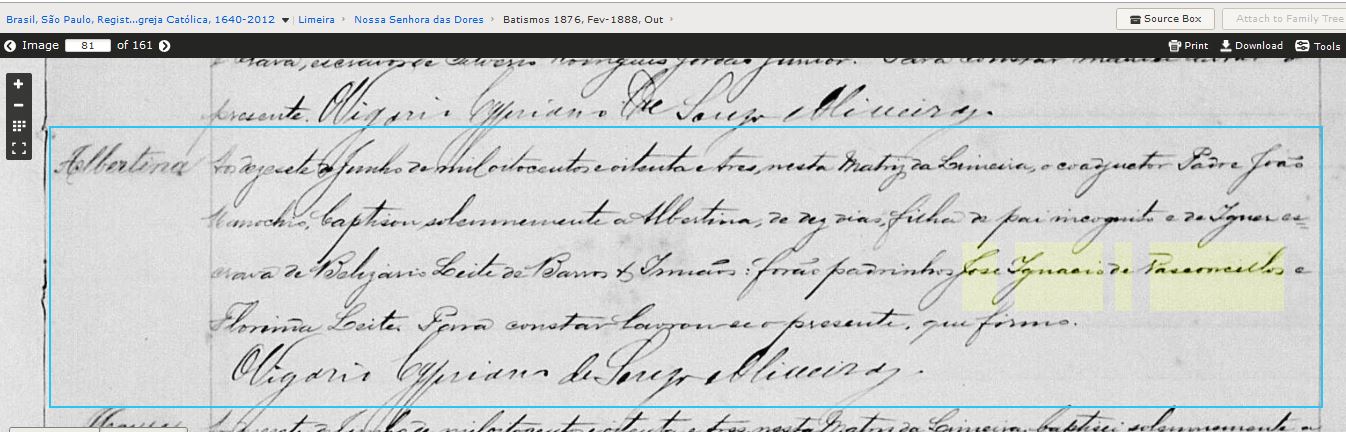 Brasil, São Paulo, Regist...greja Católica, 1640-2012 ▾ Limeira › Nossa Senhora das Dores › Batismos 1876, Fev-1888, Out ›
Source Box
Attach to Family Tree
Image 81 of 161
Print Download Tools
presente. O Vigario Cypriano de Souza e Oliveira.
Albertina
Ao dezesete de Junho de mil oitocentos e oitenta e tres, nesta Matriz da Limeira, o coadjuctor Padre João
baptisou solemnemente a Albertina, de dez dias, filha de pai incognito e de Ignez es=
crava de Belizario Leite de Barros & Irmãos: forão padrinhos José Ignacio de Vasconcellos e
Florinda Leite. Para constar lavrou-se o presente, que firmo.
O Vigario Cypriano de Souza e Oliveira.
de mil oitocentos e oitenta e tres nesta Matriz da Limeira baptisei solemnemente a